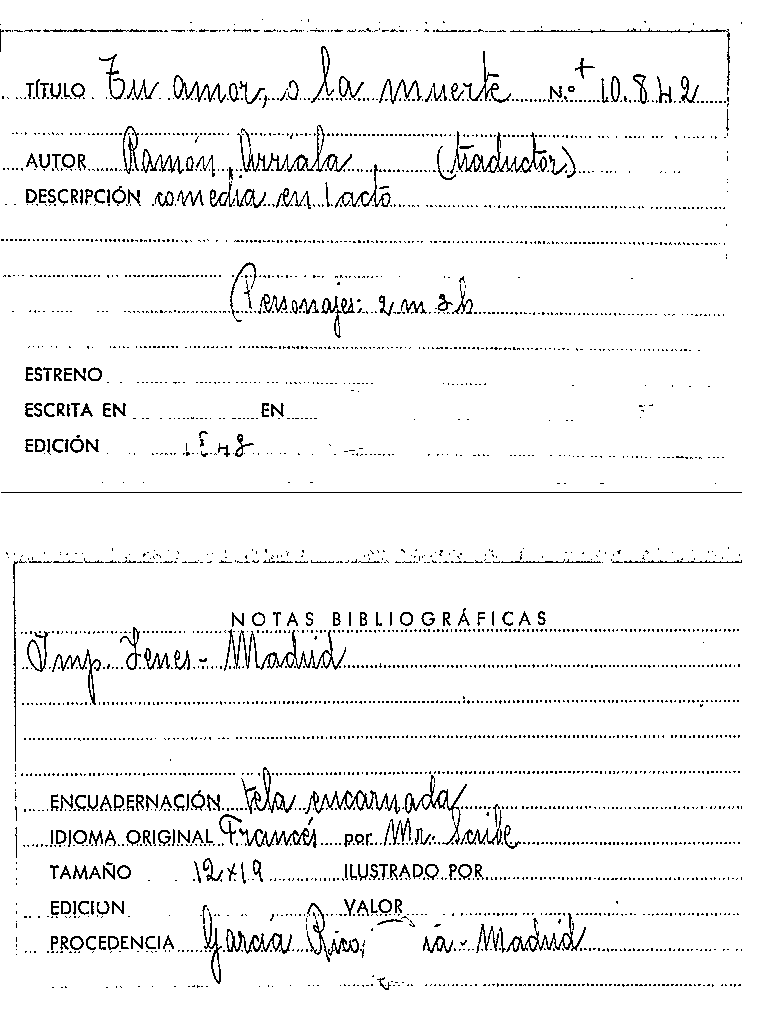 TÍTULO Tu amor, o la muerte N.º + 10.842
AUTOR Ramón Arriala (traductor)
DESCRIPCIÓN comedia en 1 acto
Personajes: 2 m 3 h
ESTRENO
ESCRITA EN EN
EDICIÓN
NOTAS BIBLIOGRÁFICAS
Imp. Yenes - Madrid
ENCUADERNACIÓN tela encarnada
IDIOMA ORIGINAL Francés por Mr. Scribe
TAMAÑO 12x19 ILUSTRADO POR
EDICION VALOR
PROCEDENCIA García Rico, ía - Madrid